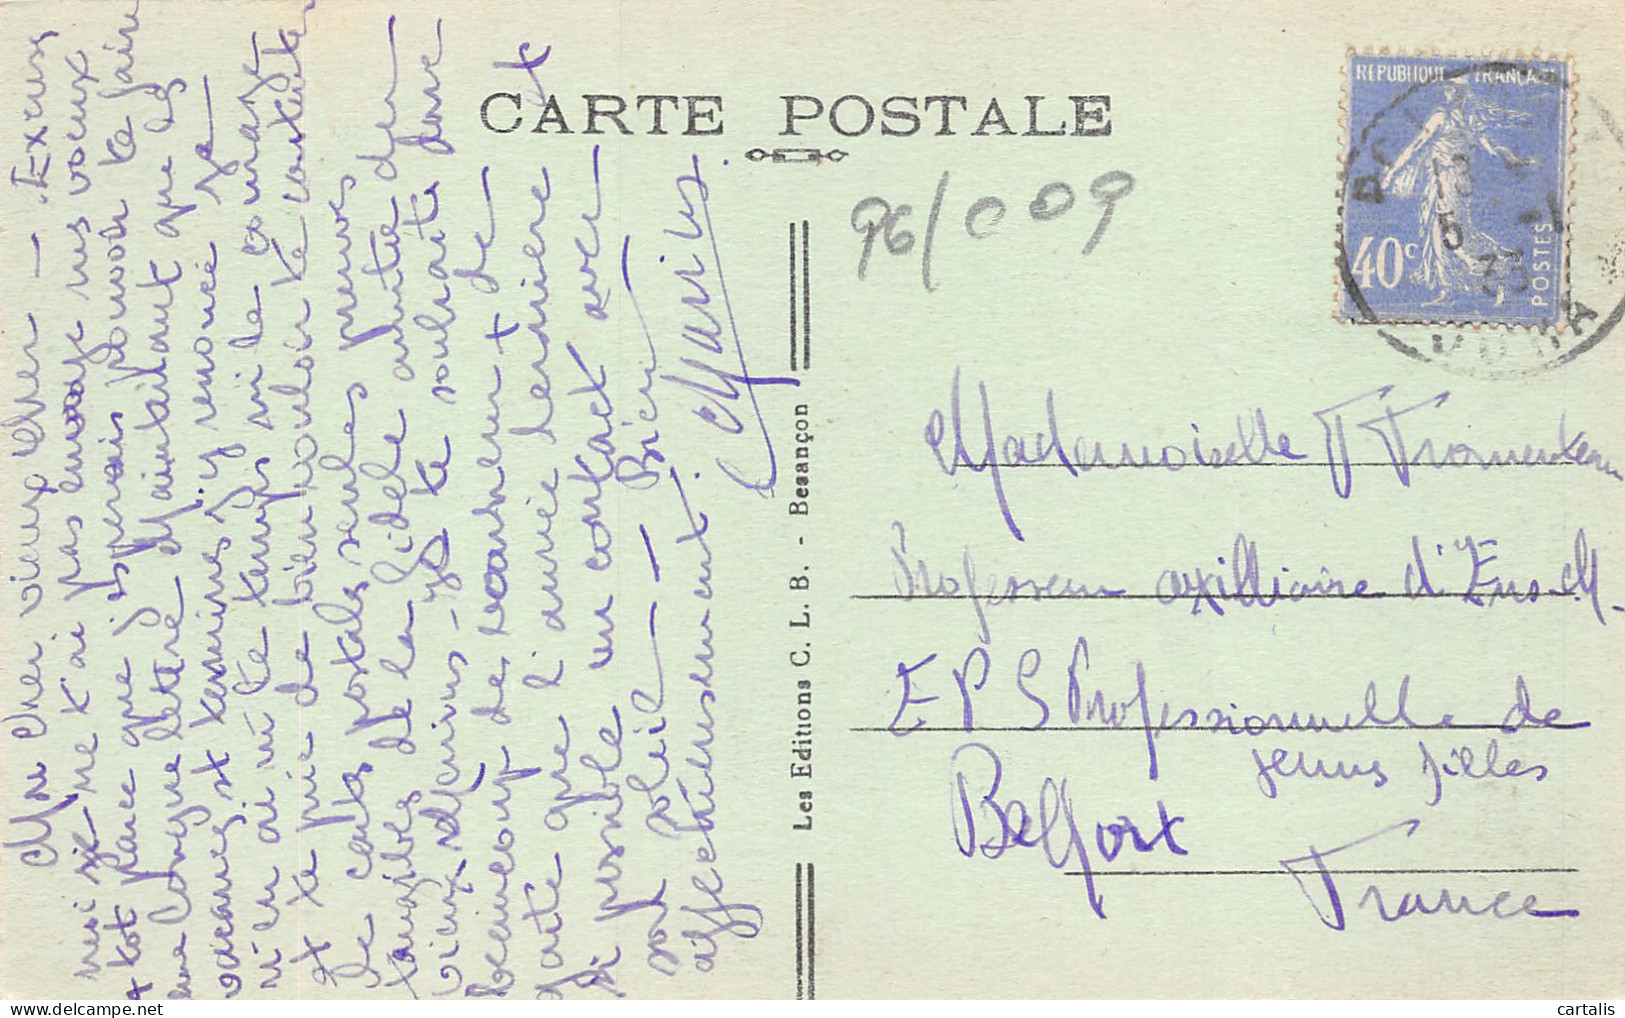 CARTE POSTALE
96/009
REPUBLIQUE FRANCAISE
40c
POSTES
18
5 -1
33
Mon cher vieux cher — Excuse
moi si je ne t'ai pas envoyé mes voeux
+ tot parce que j'esperais pouvoir te faire
une longue lettre Maintenant que les
vacances st terminés j'y renonce Je
n'en ai ni le temps ni le courage
et te prie de bien vouloir te contenter
de cette postale seules preuves
tangibles de la fidele amitié du
vieux Marius — Je te souhaite donc
beaucoup de bonheur + de
gaité que l'année derniere et
si possible un contact avec
sol — Bien
affectueusement.
Marius
Les Editions C. L. B. - Besançon
Mademoiselle F Fromenteau
Professeur auxilliaire d'Ens. M.
E P S Professionnelle de
jeunes filles
Belfort
France
cartalis